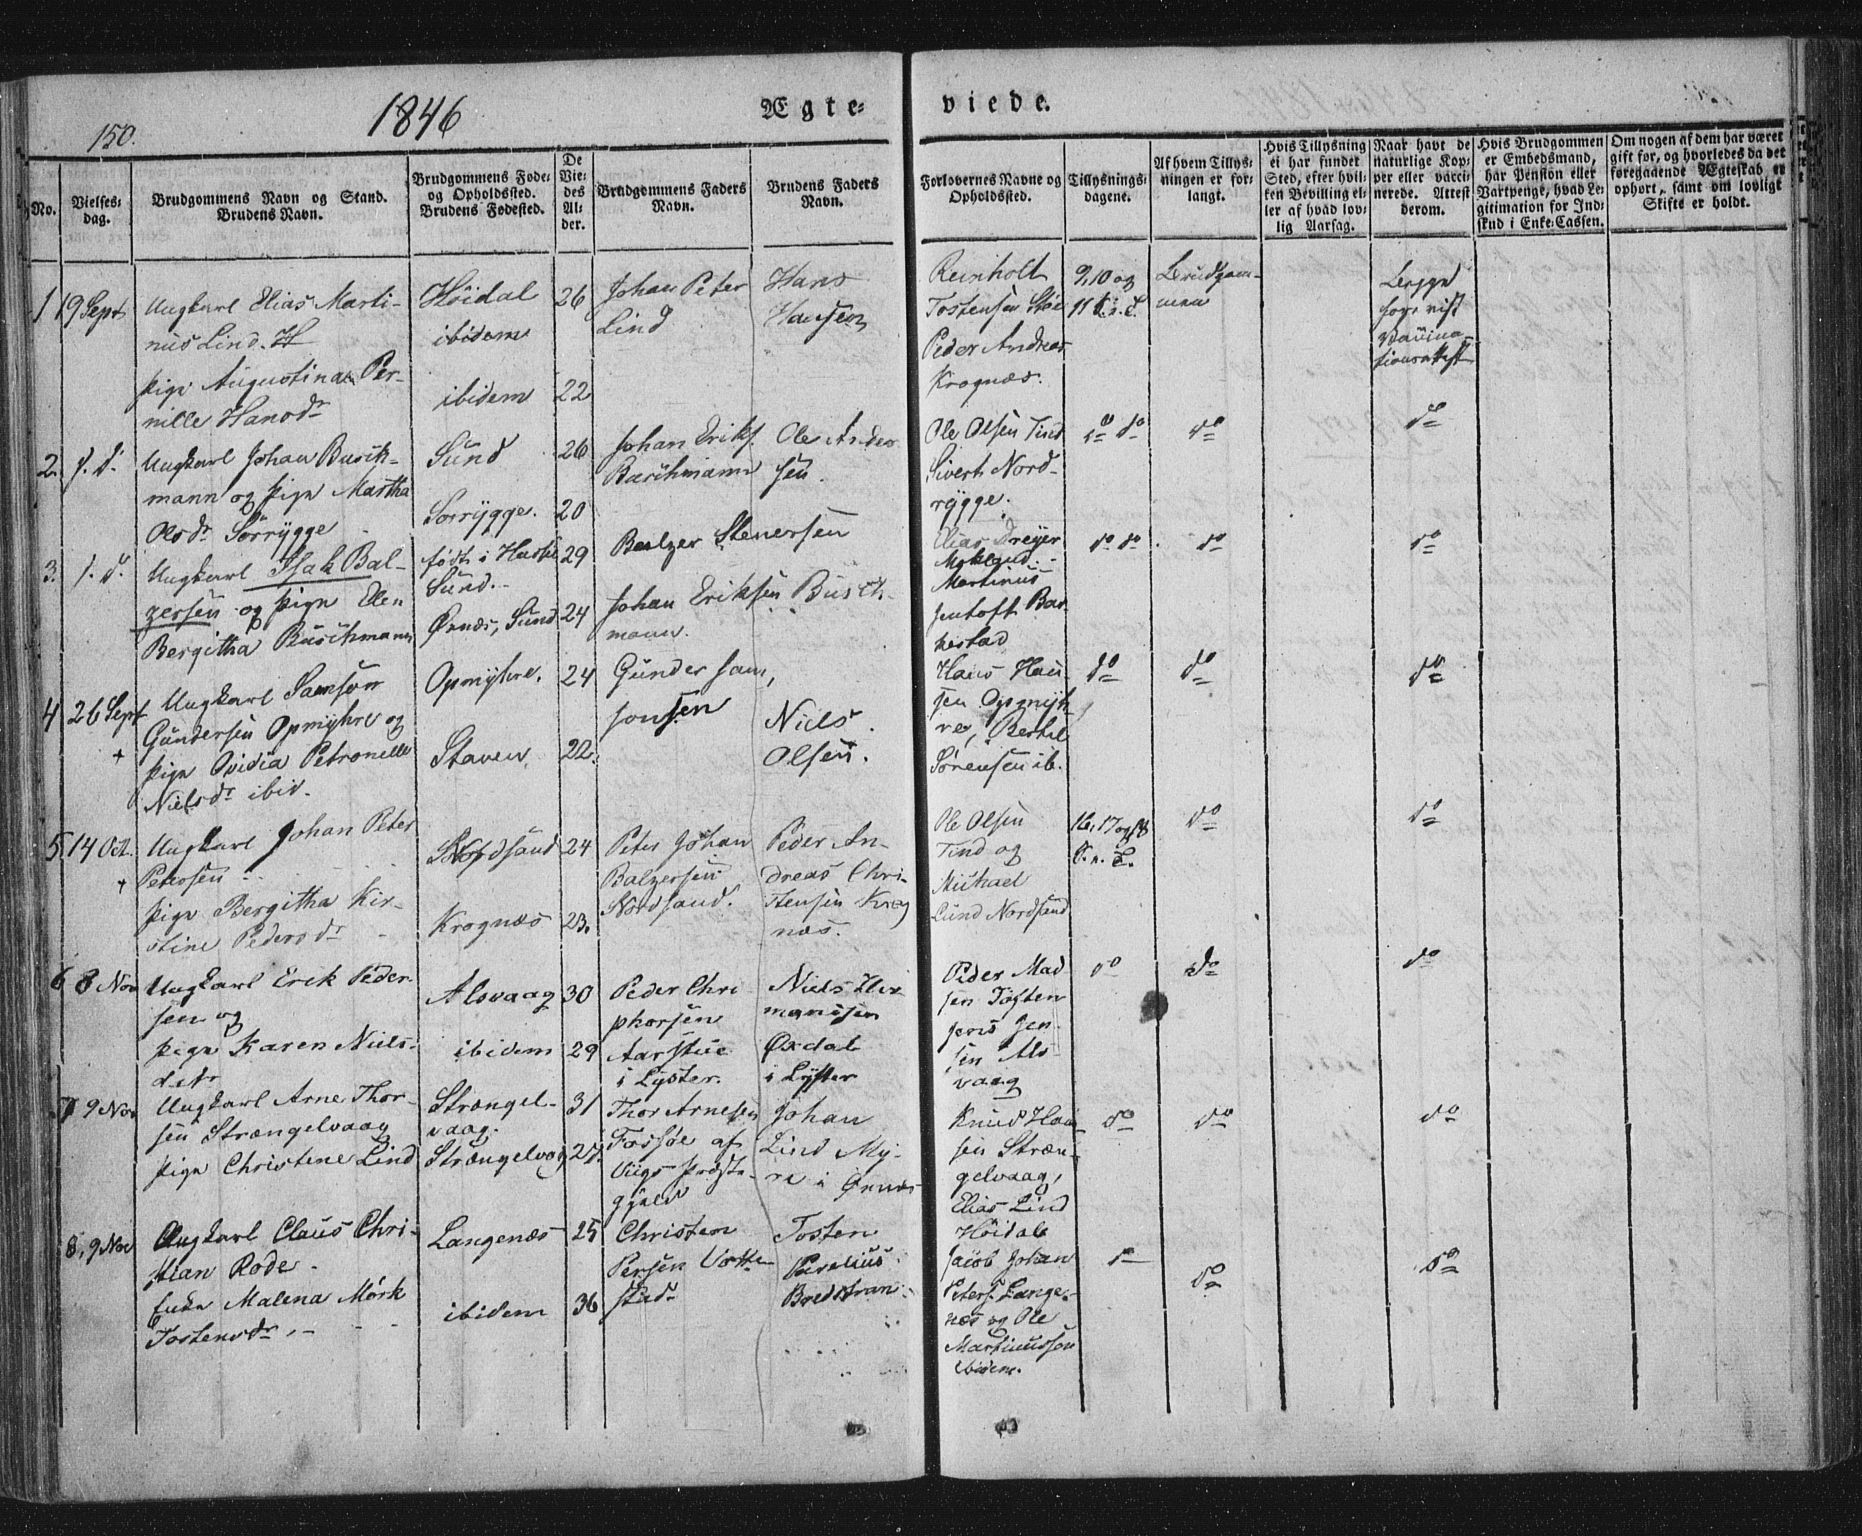 150.
1846
Ægte=
viede.
No.
Vielses=
dag.
Brudgommens Navn og Stand.
Brudens Navn.
Brudgommens Føde=
og Opholdssted.
Brudens Fødested.
De
Vie=
des
Al=
der.
Brudgommens Faders
Navn.
Brudens Faders
Navn.
Forlovernes Navne og
Opholdssted.
Tillysnings=
dagene.
Af hvem Tillys=
ningen er for=
langt.
Hvis Tillysning
ei har fundet
Sted, efter hvil=
ken Bevilling el=
ler af hvad lov=
lig Aarsag.
Naar havt de
naturlige Kop=
per eller vacci=
nerede. Attest
derom.
Hvis Brudgommen
er Embedsmand,
har Pension eller
Vartpenge, hvad Le=
gitimation for Ind=
skud i Enke=Cassen.
Om nogen af dem har været
gift før, og hvorledes da det
foregaaende Ægteskab er
ophørt, samt om lovligt
Skifte er holdt.
1
19 Sept
Ungkarl Elias Marti-
nus Lind. H
Pige Augustina Per-
nille Hansdr
Höidal
ibidem
ibidem
26
22
Johan Peter
Lind
Hans
Hansen
Reinholt
Tostensen
Peder Andreas
Krognæs.
9, 10 og
11
Brudgom-
men
Begge
forevist
Vaccina-
tionsattest
2.
Ungkarl Johan Busch-
mann og Pige Martha
Olsdr Sörrygge
Sund
Sörrygge.
26
20
Johan Eriks.
Buschmann
Ole Ander
sen.
Ole Olsen Tind
Sivert Nord-
rygge.
do do
do
do
3.
Ungkarl Isak Bal-
zersen og Pige Elen
Bergitha Buschmann
födt i Hassel
Sund.
Örnæs, Sund
29
24
Balzer Stenersen
Johan Eriksen Busch-
mann.
Elias Dreyer
Martinus
Jentoft Bar
kestad
do do
do
do
4
26 Sept
+
Ungkarl Samson
Gundersen Opmyhre og
Pige Ovidia Petronelle
Nielsdr ibid.
Opmyhre.
Staven
24
22.
Gunder Sam,
sonsen
Niels
Olsen.
Hans Han
sen Opmyh-
re, Bertel
Sörensen ib.
do
do
do
5.
14 Oct.
+
Ungkarl Johan Peter
Petersen
Pige Bergitha Kir-
stine Pedersdr
Nordsand
Krognæs
24
23.
Peter Johan
Balzersen
Nordsand.
Peder An-
dreas Chri-
stensen Krog
næs.
Ole Olsen
Tind og
Michael
Lund Nordsand
16, 17 og 18
do
do
6
8 Nov
Ungkarl Erik Peder-
sen og
Pige Karen Niels-
datr
Alsvaag
ibidem
30
29
Peder Chri
phersen
Aarstue
i Lyster.
Niels Her
mansen
Öxdal
i Lyster
Peder Mad
sen Toften
Jens Jen-
sen Als-
vaag
do
do
do
7
9 Nov
Ungkarl Arne Thor-
sen Strængelvaag
Pige Christene Lind
Strængel-
vaag.
Strængelvaag
31
27.
Thor Arnesen
Fossöe af
Viigs Præste-
gjeld
Johan
Lind My-
re i Örnæs
Knud Han
sen Stræn-
gelvaag,
Elias Lind
Höidal
do
do
do
8,
9 Nov
Ungkarl Claus Chri-
stian Rode
Enke Malena Mörk
Tostensdr
Langenæs
ibidem
25
36
Christen
Persen
stad
Tosten
Bredstran
Jacob Johan
Peters. Lange-
næs og Ole
Martinussön
ibidem.
do
do